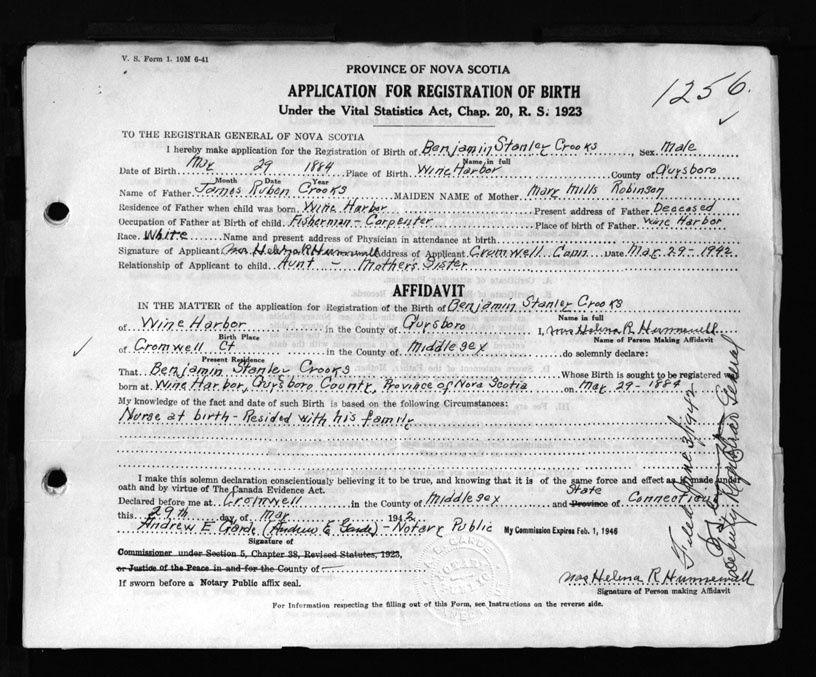 V. S. Form 1. 10M 6-41
PROVINCE OF NOVA SCOTIA
APPLICATION FOR REGISTRATION OF BIRTH
Under the Vital Statistics Act, Chap. 20, R. S. 1923
1256.
TO THE REGISTRAR GENERAL OF NOVA SCOTIA
I hereby make application for the Registration of Birth of Benjamin Stanley Crooks Sex Male
Name in full
Date of Birth Mar 29 1884 Place of Birth Wine Harbor County of Guysboro
Month Date Year
Name of Father James Rubon Crooks MAIDEN NAME of Mother Mary Mills Robinson
Residence of Father when child was born Wine Harbor Present address of Father Deceased
Occupation of Father at Birth of child Fisherman - Carpenter Place of birth of Father Wine Harbor
Race White Name and present address of Physician in attendance at birth
Signature of Applicant Mrs Helena R Hunnewell Address of Applicant Cromwell Conn Date Mar 29 - 1942
Relationship of Applicant to child Aunt - Mother's Sister
AFFIDAVIT
IN THE MATTER of the application for Registration of the Birth of Benjamin Stanley Crooks
Name in full
of Wine Harbor in the County of Guysboro I, Mrs Helena R Hunnewell
Birth Place Name of Person Making Affidavit
of Cromwell Ct in the County of Middlesex do solemnly declare:
Present Residence
That Benjamin Stanley Crooks Whose Birth is sought to be registered was
born at Wine Harbor, Guysboro County, Province of Nova Scotia on Mar 29 - 1884
My knowledge of the fact and date of such Birth is based on the following Circumstances:
Nurse at birth - Resided with his family
I make this solemn declaration conscientiously believing it to be true, and knowing that it is of the same force and effect as if made under
oath and by virtue of The Canada Evidence Act.
State
Declared before me at Cromwell in the County of Middlesex and Province of Connecticut
this 29th day of Mar 1942
Andrew E Garde (Andrew E Garde) - Notary Public My Commission Expires Feb. 1, 1946
Signature of
Commissioner under Section 5, Chapter 38, Revised Statutes, 1923,
or Justice of the Peace in and for the County of
If sworn before a Notary Public affix seal.
Mrs Helena R Hunnewell
Signature of Person making Affidavit
For Information respecting the filling out of this Form, see Instructions on the reverse side.
Filed June 3/1942
Deputy Registrar General